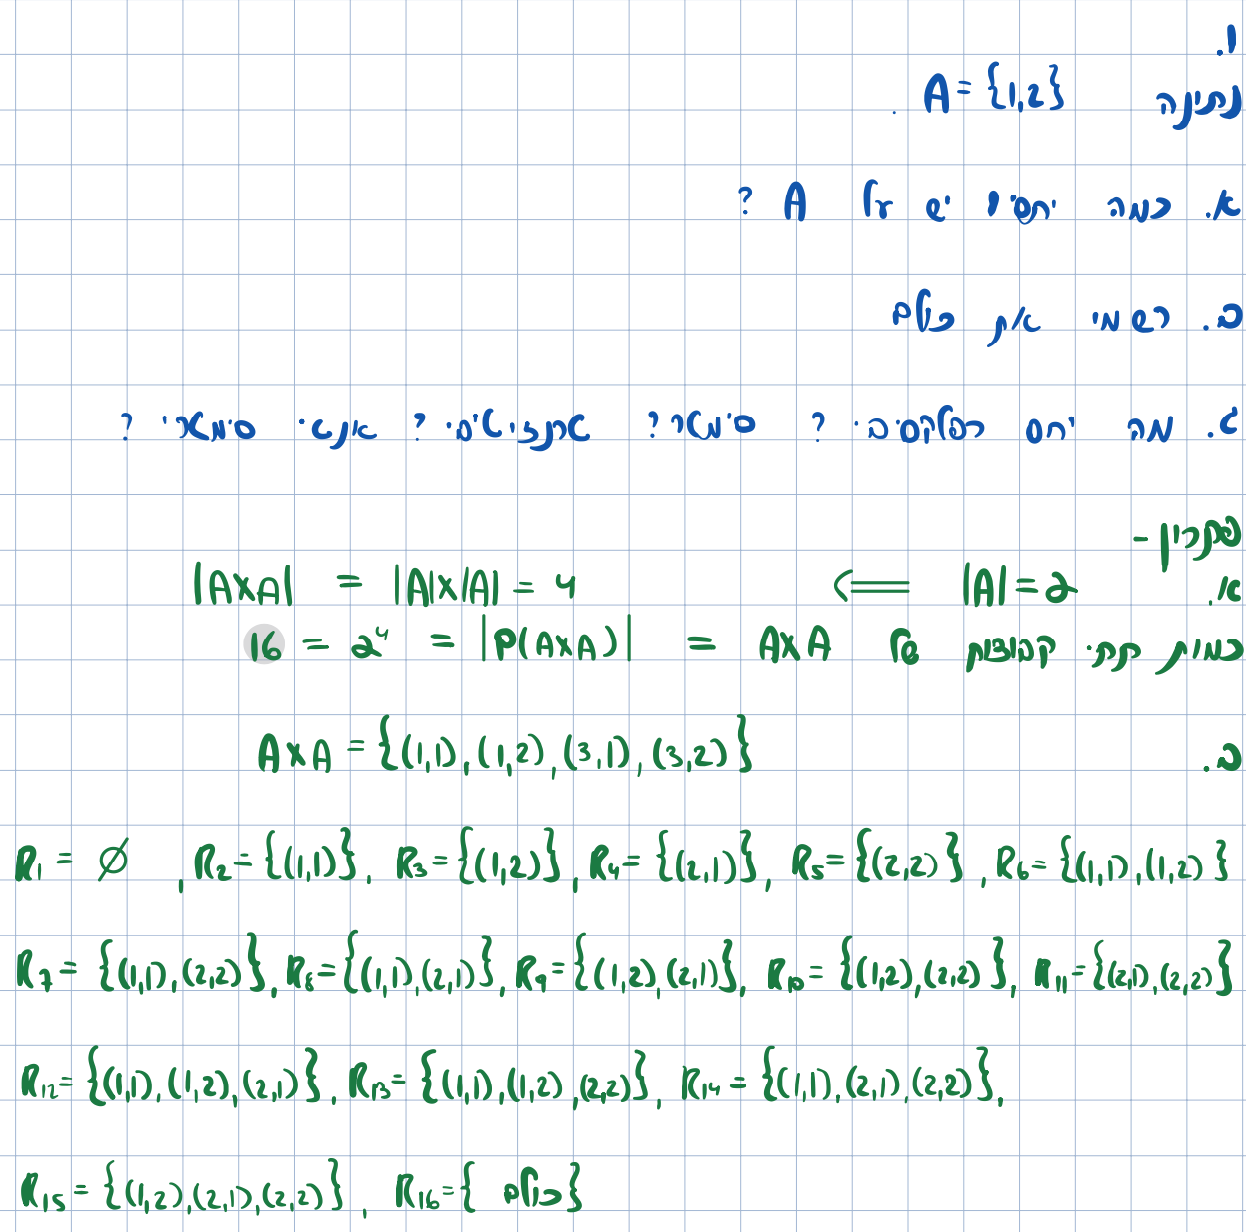 1.
נתינה A = {1,2}
א. כמה יחסים יש על A ?
ב. רשמי את כולם
ג. מה יחס רפלקסיבי ? סימטרי ? טרנזיטיבי ? אנטי סימטרי ?
פתרון -
א. |A| = 2 ⟹ |A×A| = |A|×|A| = 4
כמות תתי קבוצות של A×A = |P(A×A)| = 2⁴ = 16
ב. A×A = {(1,1), (1,2), (3,1), (3,2)}
R₁ = ∅ , R₂ = {(1,1)}, R₃ = {(1,2)}, R₄ = {(2,1)}, R₅ = {(2,2)}, R₆ = {(1,1), (1,2)}
R₇ = {(1,1), (2,2)}, R₈ = {(1,1), (2,1)}, R₉ = {(1,2), (2,1)}, R₁₀ = {(1,2), (2,2)}, R₁₁ = {(2,1), (2,2)}
R₁₂ = {(1,1), (1,2), (2,1)}, R₁₃ = {(1,1), (1,2), (2,2)}, R₁₄ = {(1,1), (2,1), (2,2)},
R₁₅ = {(1,2), (2,1), (2,2)}, R₁₆ = {כולם}